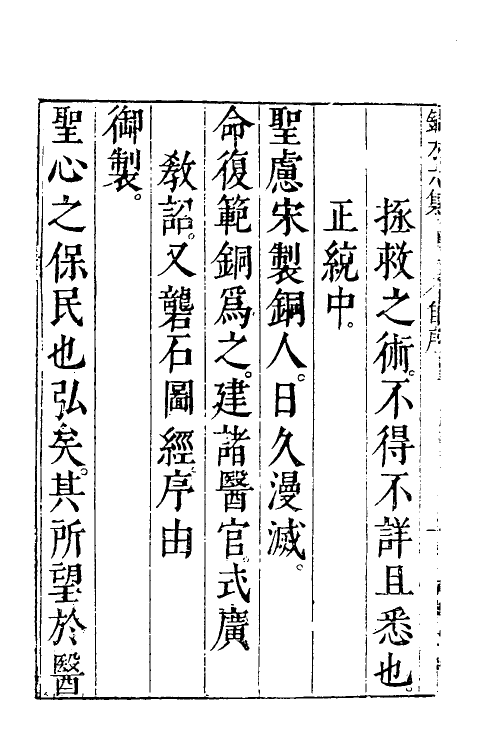 拯救之術。不得不詳且悉也。
正統中。
聖慮宋製銅人。日久漫滅。
命復範銅爲之。建諸醫官。式廣
教詔。又礱石圖經。序由
御製。
聖心之保民也弘矣。其所望於醫